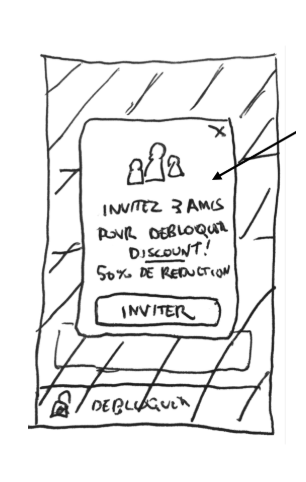 X
INVITEZ 3 AMIS
POUR DEBLOQUER
DISCOUNT!
50% DE REDUCTION
INVITER
DEBLOQUER